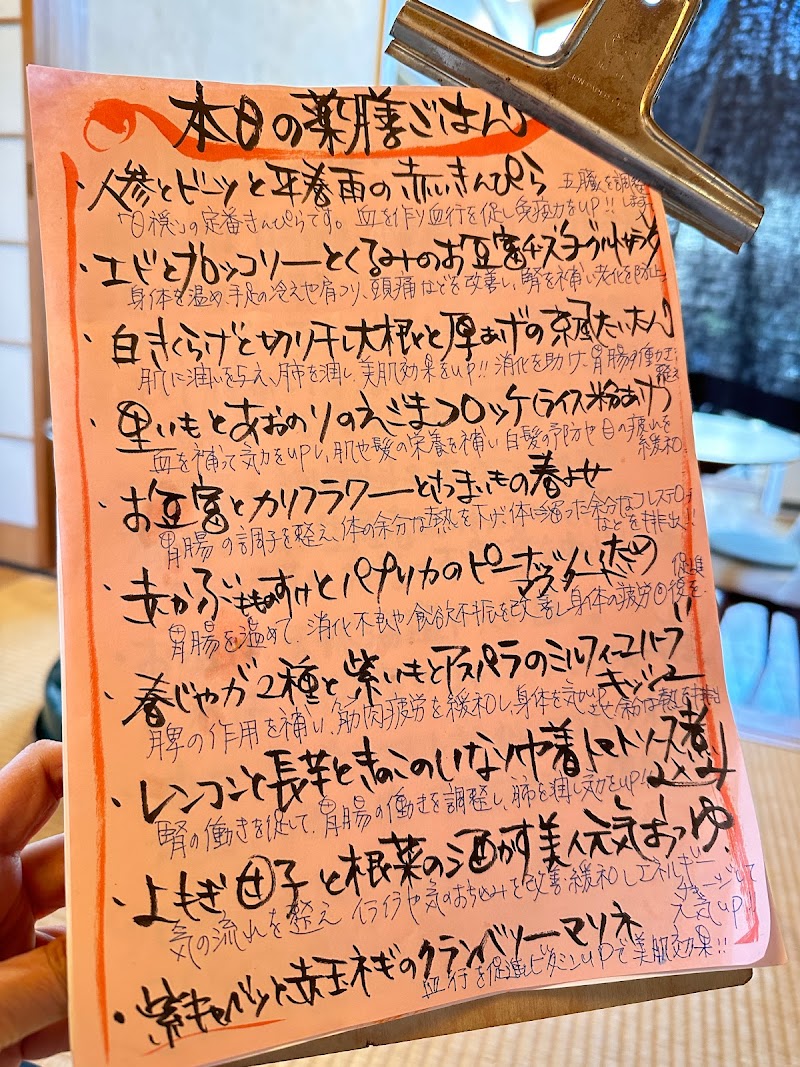 本日の薬膳ごはん
・人参とビーツと平春雨の赤いきんぴら
五臓を調整します
「日穏」の定番きんぴらです。血を作り血行を促し免疫力をUP!!
・エビとブロッコリーとくるみのお豆富チーズヨーグルトサラダ
身体を温め、手足の冷えや肩コリ、頭痛などを改善し、腎を補い老化を防止
・白きくらげと切り干し大根と厚あげの京風たいたん
肌に潤いを与え、肺を潤し、美肌効果をUP!! 消化を助け、胃腸の働きを整え
・里いもとあおのりのえごまコロッケ(ライス粉あげ)
血を補って気力をUPし、肌や髪の栄養を補い 白髪の予防や目の疲れを
緩和
・お豆富とカリフラワーとさつまいもの春よせ
胃腸の調子を整え、体の余分な熱を下げ体に溜った余分なコレステロ
などを排出!!
・赤かぶもものすけとパプリカのピーナッツバターいため
胃腸を温めて、消化不良や食欲不振を改善し身体の疲労回復を
促進
・春じゃが2種と紫いもとアスパラのミルフィーユハーブ
キッシュ
脾の作用を補い、筋肉疲労を緩和し、身体を気UPさせ余分な熱を排出
・レンコンと長芋ときのこのいなり巾着トマトソース煮
込み
腎の働きを促して、胃腸の働きを調整し、肺を潤し気力をUP!!
・よもぎ団子と根菜の酒かす美人元気おつゆ
気の流れを整え イライラや気のおち込みを改善 緩和しエネルギー
チャージして
元気UP!!
・紫キャベツと赤玉ネギのクランベリーマリネ
血行を促進ビタミンUPで美肌効果!!